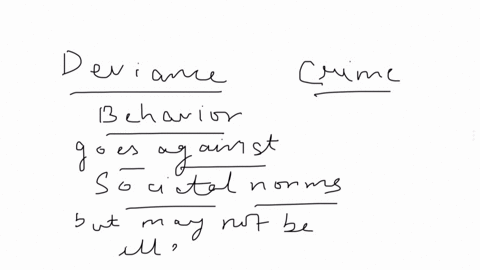 Deviance Crime
Behavior
goes against
Societal norms
but may not be
ill